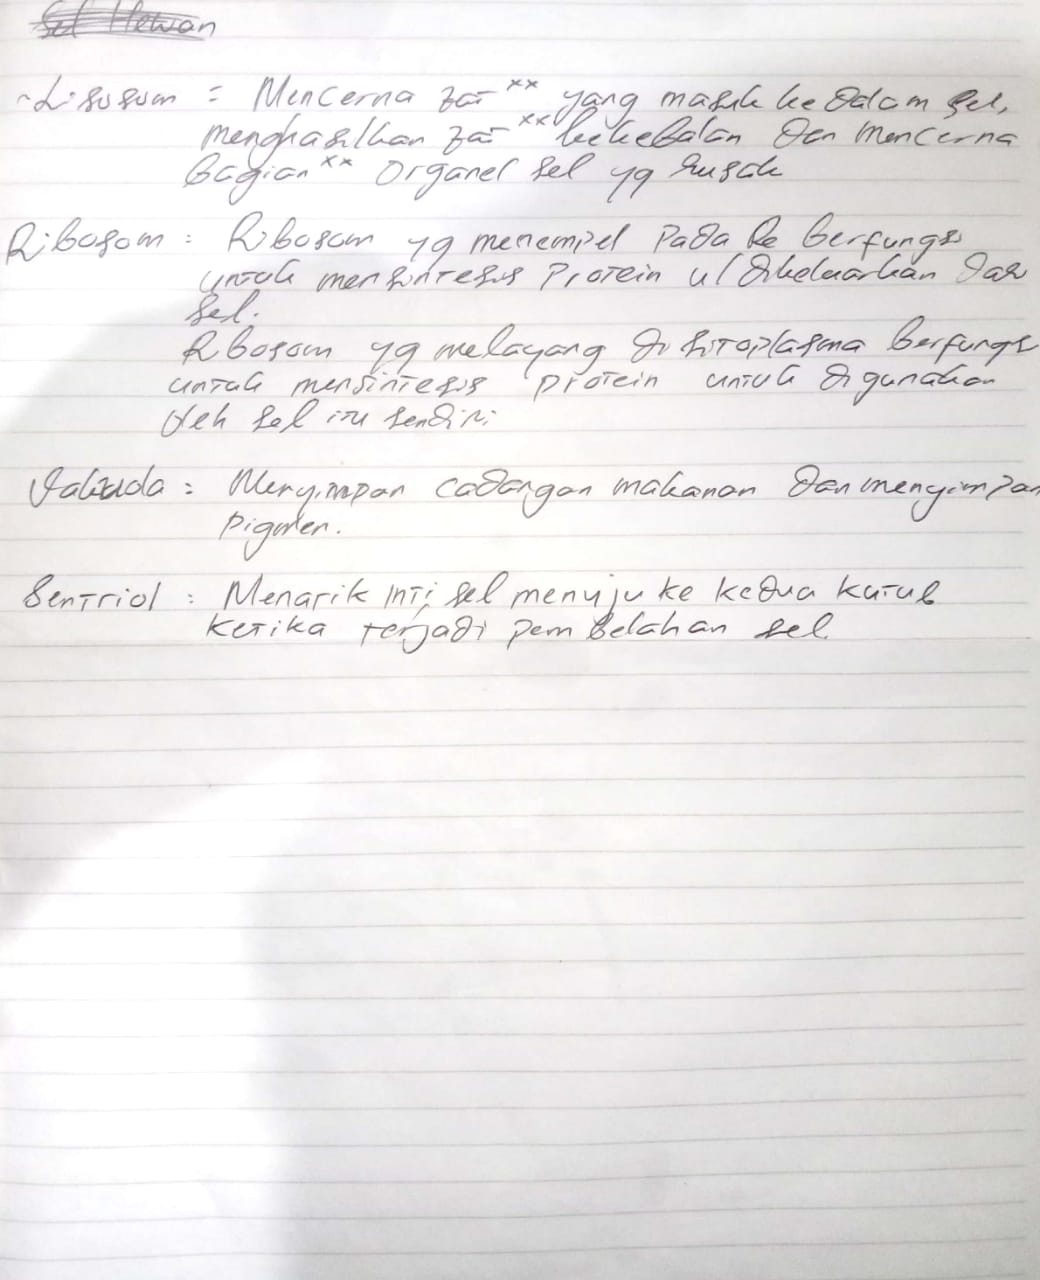 Sel Hewan
~Lisosom = Mencerna zat ×× yang masuk kedalam sel,
menghasilkan zat ×× kekebalan dan mencerna
bagian ×× organel sel yg rusak
Ribosom : Ribosom yg menempel pada Re berfungsi
untuk mensintesis Protein u/ dikeluarkan dari
sel.
Ribosom yg melayang di sitoplasma berfungsi
untuk mensintesis protein untuk digunakan
oleh sel itu sendiri
Vakuola : Menyimpan cadangan makanan dan menyimpan
pigmen.
Sentriol : Menarik inti sel menuju ke kedua kutub
ketika terjadi pembelahan sel